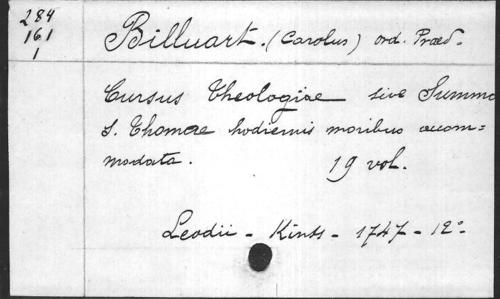 284
161
1
Billuart. (Carolus) ord. Præd.
Cursus Theologiae sive Summa
S. Thomae hodiernis moribus accom=
modata. 19 vol.
Leodii - Kints - 1747 - 12°